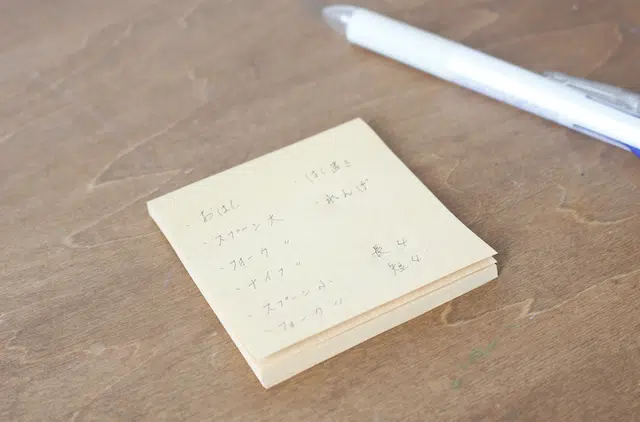 ・おはし
・スプーン大
・フォーク 〃
・ナイフ 〃
・スプーン小
・フォーク 〃
・はし置き
・れんげ
長4
短4